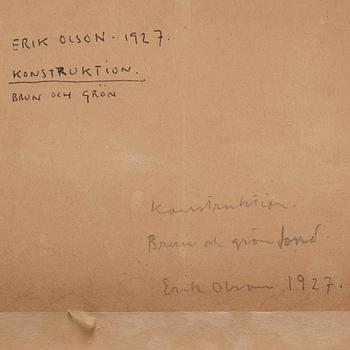 ERIK OLSON - 1927.
KONSTRUKTION.
BRUN OCH GRÖN
Konstruktion.
Brun och grön fond
Erik Olson 1927.